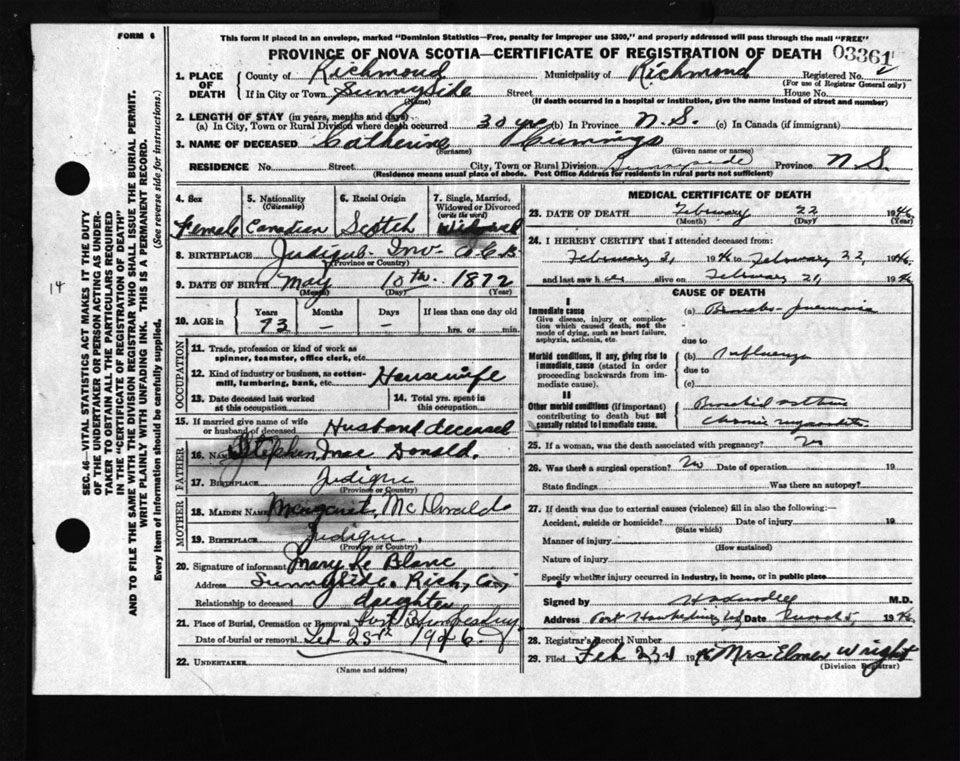 FORM 6
This form if placed in an envelope, marked "Dominion Statistics—Free, penalty for improper use $300," and properly addressed will pass through the mail "FREE"
PROVINCE OF NOVA SCOTIA—CERTIFICATE OF REGISTRATION OF DEATH 03361
1. PLACE OF DEATH County of Richmond Municipality of Richmond Registered No.
(For use of Registrar General only)
If in City or Town Sunnyside Street House No.
(Name) (If death occurred in a hospital or institution, give the name instead of street and number)
2. LENGTH OF STAY (in years, months and days)
(a) In City, Town or Rural Division where death occurred 30 yrs (b) In Province N.S. (c) In Canada (if immigrant)
3. NAME OF DECEASED Catherine Cummings
(Surname) (Given name or names)
RESIDENCE No. Street City, Town or Rural Division Sunnyside Province N.S.
(Residence means usual place of abode. Post Office Address for residents in rural parts not sufficient)
4. Sex Female
5. Nationality (Citizenship) Canadian
6. Racial Origin Scotch
7. Single, Married, Widowed or Divorced (write the word) Widowed
8. BIRTHPLACE Judique Inv. C.B.
(Province or Country)
9. DATE OF BIRTH May 10th 1872
(Month) (Day) (Year)
10. AGE in Years 73 Months – Days – If less than one day old hrs. or min.
OCCUPATION
11. Trade, profession or kind of work as spinner, teamster, office clerk, etc.
12. Kind of industry or business, as cotton-mill, lumbering, bank, etc. Housewife
13. Date deceased last worked at this occupation
14. Total yrs. spent in this occupation
15. If married give name of wife or husband of deceased Husband deceased
FATHER
16. NAME Stephen Mac Donald.
17. BIRTHPLACE Judique
(Province or Country)
MOTHER
18. MAIDEN NAME Margaret McDonald
19. BIRTHPLACE Judique,
(Province or Country)
20. Signature of informant Mary Le Blanc
Address Sunnyside, Rich, Co,
Relationship to deceased daughter
21. Place of Burial, Cremation or Removal Port
Date of burial or removal Feb 25th 1946
22. UNDERTAKER
(Name and address)
MEDICAL CERTIFICATE OF DEATH
23. DATE OF DEATH February 22 1946
(Month) (Day)
24. I HEREBY CERTIFY that I attended deceased from:
February 2, 1946 to February 22, 1946
and last saw h er alive on February 21, 1946
CAUSE OF DEATH
I
Immediate cause
Give disease, injury or complication which caused death, not the mode of dying, such as heart failure, asphyxia, asthenia, etc.
(a) Broncho-pneumonia
due to
Morbid conditions, if any, giving rise to immediate cause (stated in order proceeding backwards from immediate cause).
(b) Influenza
due to
(c)
II
Other morbid conditions (if important) contributing to death but not causally related to immediate cause.
Bronchial asthma
Chronic myocarditis
25. If a woman, was the death associated with pregnancy? No
26. Was there a surgical operation? No Date of operation 19
State findings Was there an autopsy?
27. If death was due to external causes (violence) fill in also the following:—
Accident, suicide or homicide? Date of injury 19
(State which)
Manner of injury
(How sustained)
Nature of injury
Specify whether injury occurred in industry, in home, or in public place
Signed by M.D.
Address Port Hawkesbury Date March 5, 1946
28. Registrar's Record Number
29. Filed Feb 23rd 1946 Mrs Elmer Wright
(Division Registrar)
14
SEC. 46—VITAL STATISTICS ACT MAKES IT THE DUTY
OF THE UNDERTAKER OR PERSON ACTING AS UNDER-
TAKER TO OBTAIN ALL THE PARTICULARS REQUIRED
IN THE "CERTIFICATE OF REGISTRATION OF DEATH"
AND TO FILE THE SAME WITH THE DIVISION REGISTRAR WHO SHALL ISSUE THE BURIAL PERMIT.
WRITE PLAINLY WITH UNFADING INK. THIS IS A PERMANENT RECORD.
Every item of information should be carefully supplied. (See reverse side for instructions.)